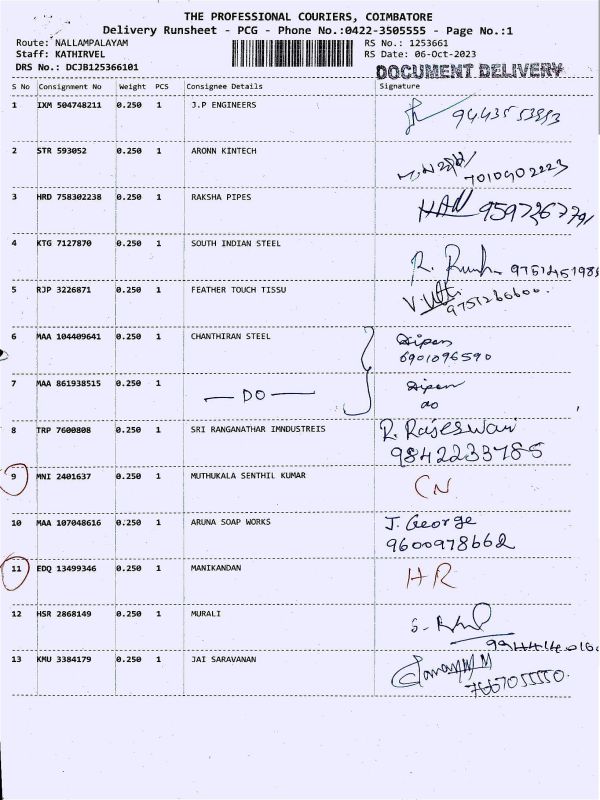 THE PROFESSIONAL COURIERS, COIMBATORE
Delivery Runsheet - PCG - Phone No.:0422-3505555 - Page No.:1
Route: NALLAMPALAYAM RS No.: 1253661
Staff: KATHIRVEL RS Date: 06-Oct-2023
DRS No.: DCJB125366101 DOCUMENT DELIVERY
S No Consignment No Weight PCS Consignee Details Signature
1 IXM 504748211 0.250 1 J.P ENGINEERS
2 STR 593052 0.250 1 ARONN KINTECH
7010902223
3 HRD 758302238 0.250 1 RAKSHA PIPES
4 KTG 7127870 0.250 1 SOUTH INDIAN STEEL
5 RJP 3226871 0.250 1 FEATHER TOUCH TISSU
9751266600.
6 MAA 104409641 0.250 1 CHANTHIRAN STEEL Dipen
6901096590
7 MAA 861938515 0.250 1 Dipen
— DO — do
8 TRP 7600808 0.250 1 SRI RANGANATHAR IMNDUSTREIS R. Rajeswari
9842233785
9 MNI 2401637 0.250 1 MUTHUKALA SENTHIL KUMAR CN
10 MAA 107048616 0.250 1 ARUNA SOAP WORKS J. George
9600978662
11 EDQ 13499346 0.250 1 MANIKANDAN HR
12 HSR 2868149 0.250 1 MURALI
13 KMU 3384179 0.250 1 JAI SARAVANAN
7667055550.